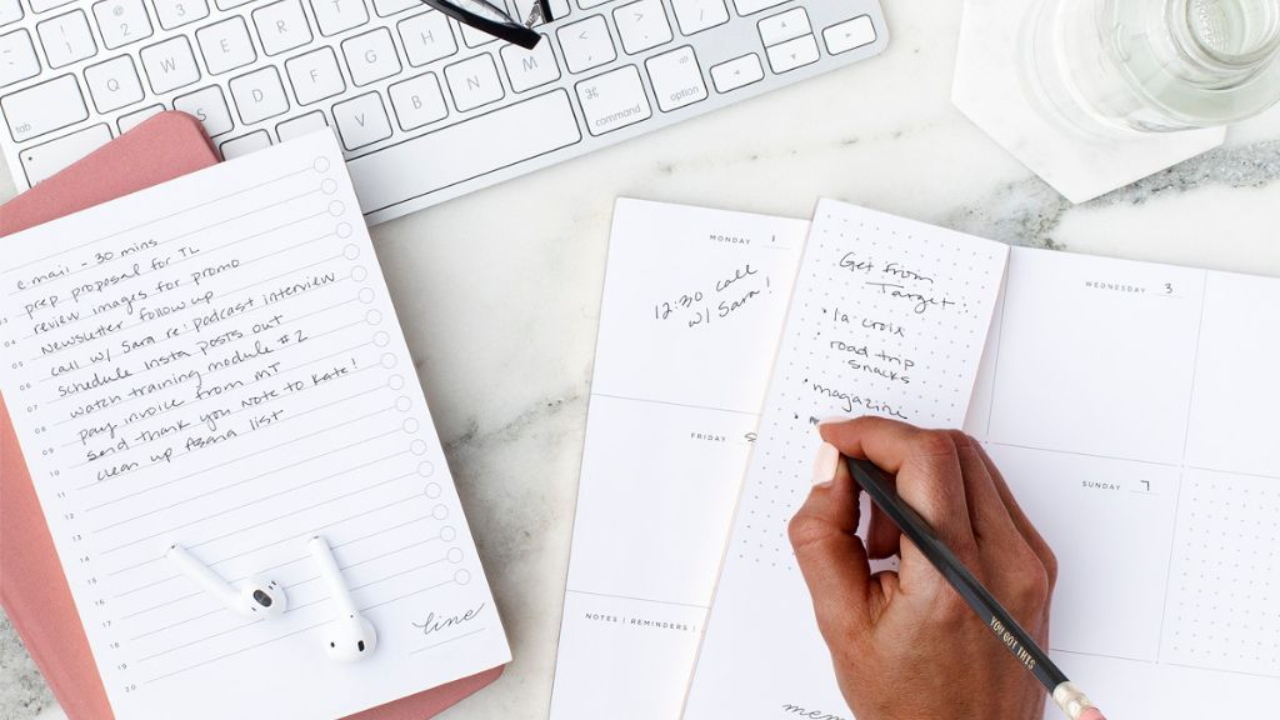 tab
! 1
@ 2
3
Q W E R T
S D F G H
V B N M
< ,
> .
? /
⌘ command
alt option
email - 30 mins
03 prep proposal for TL
04 review images for promo
05 Newsletter follow up
06 call w/ Sara re: podcast interview
07 schedule insta posts out
08 watch training module #2
09 pay invoice from MT
10 send thank you note to Kate!
11 clean up Asana list
12
13
14
15
16
17
18
19
20
line
MONDAY 1
12:30 call
w/ Sara!
FRIDAY
NOTES | REMINDERS |
Get from
Target:
• la croix
road trip
snacks
• magazine
•
mem
WEDNESDAY 3
SUNDAY 7
YOU GOT THIS